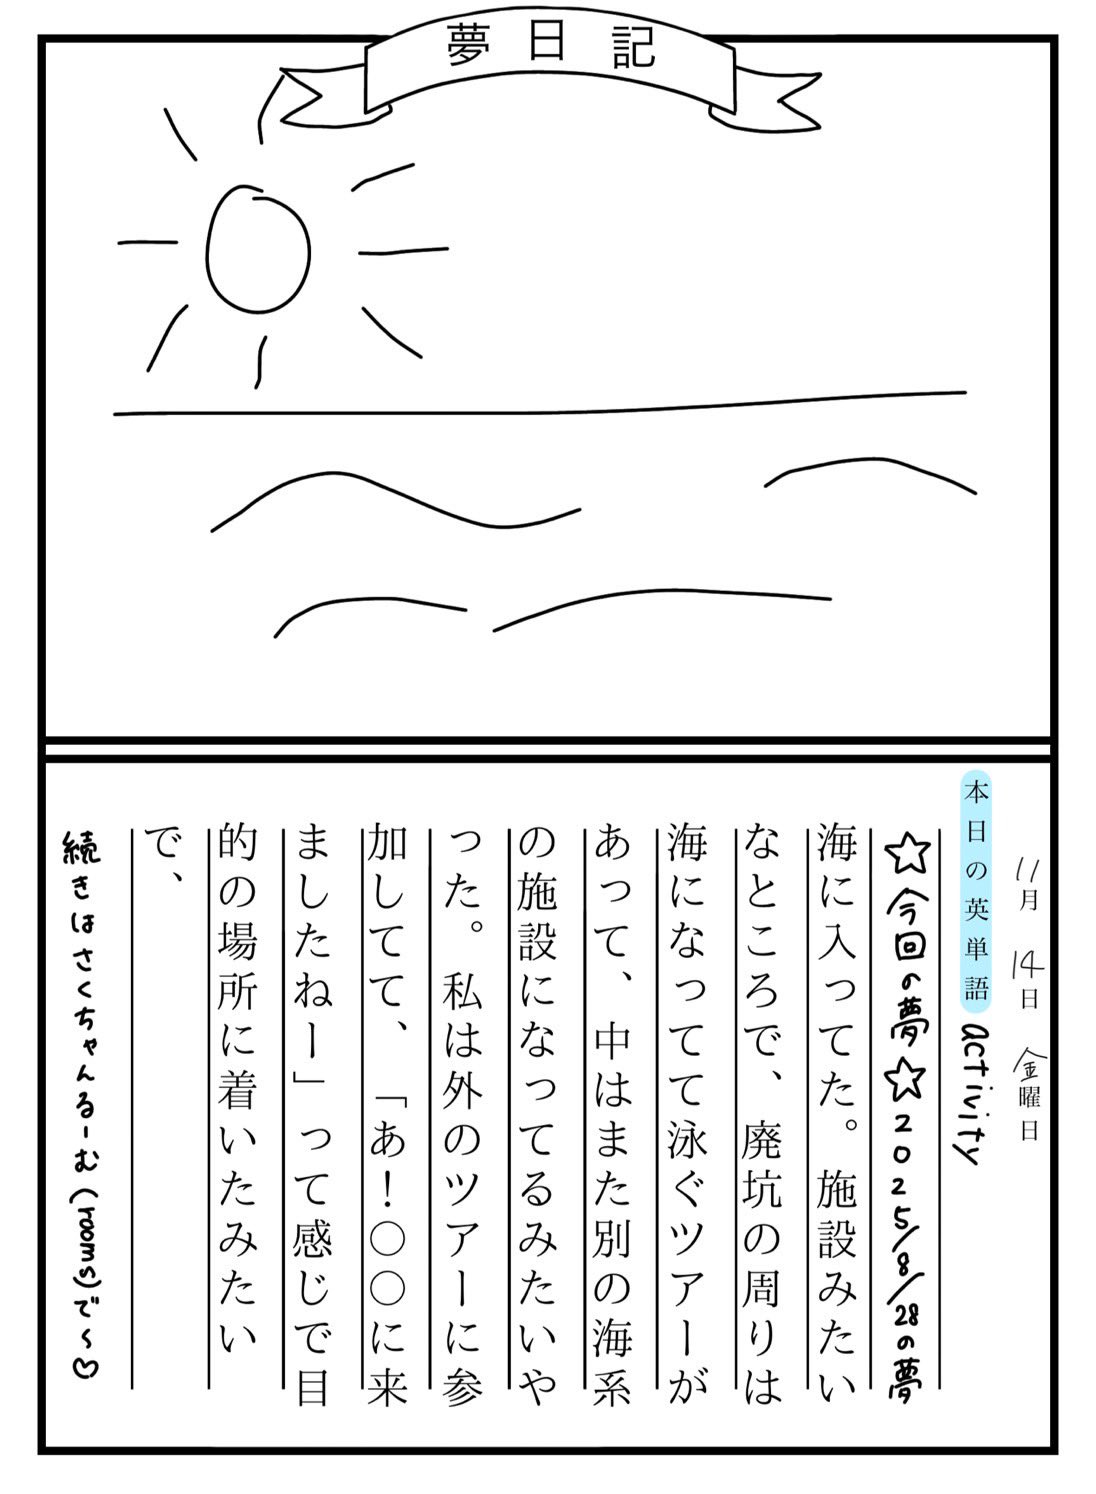 夢日記
11月 14日 金曜日
本日の英単語 activity
☆今回の夢☆2025/8/28の夢
海に入ってた。施設みたい
なところで、廃坑の周りは
海になってて泳ぐツアーが
あって、中はまた別の海系
の施設になってるみたいや
った。私は外のツアーに参
加してて、「あ！〇〇に来
ましたねー」って感じで目
的の場所に着いたみたい
で、
続きはさくちゃんるーむ(rooms)で〜♡